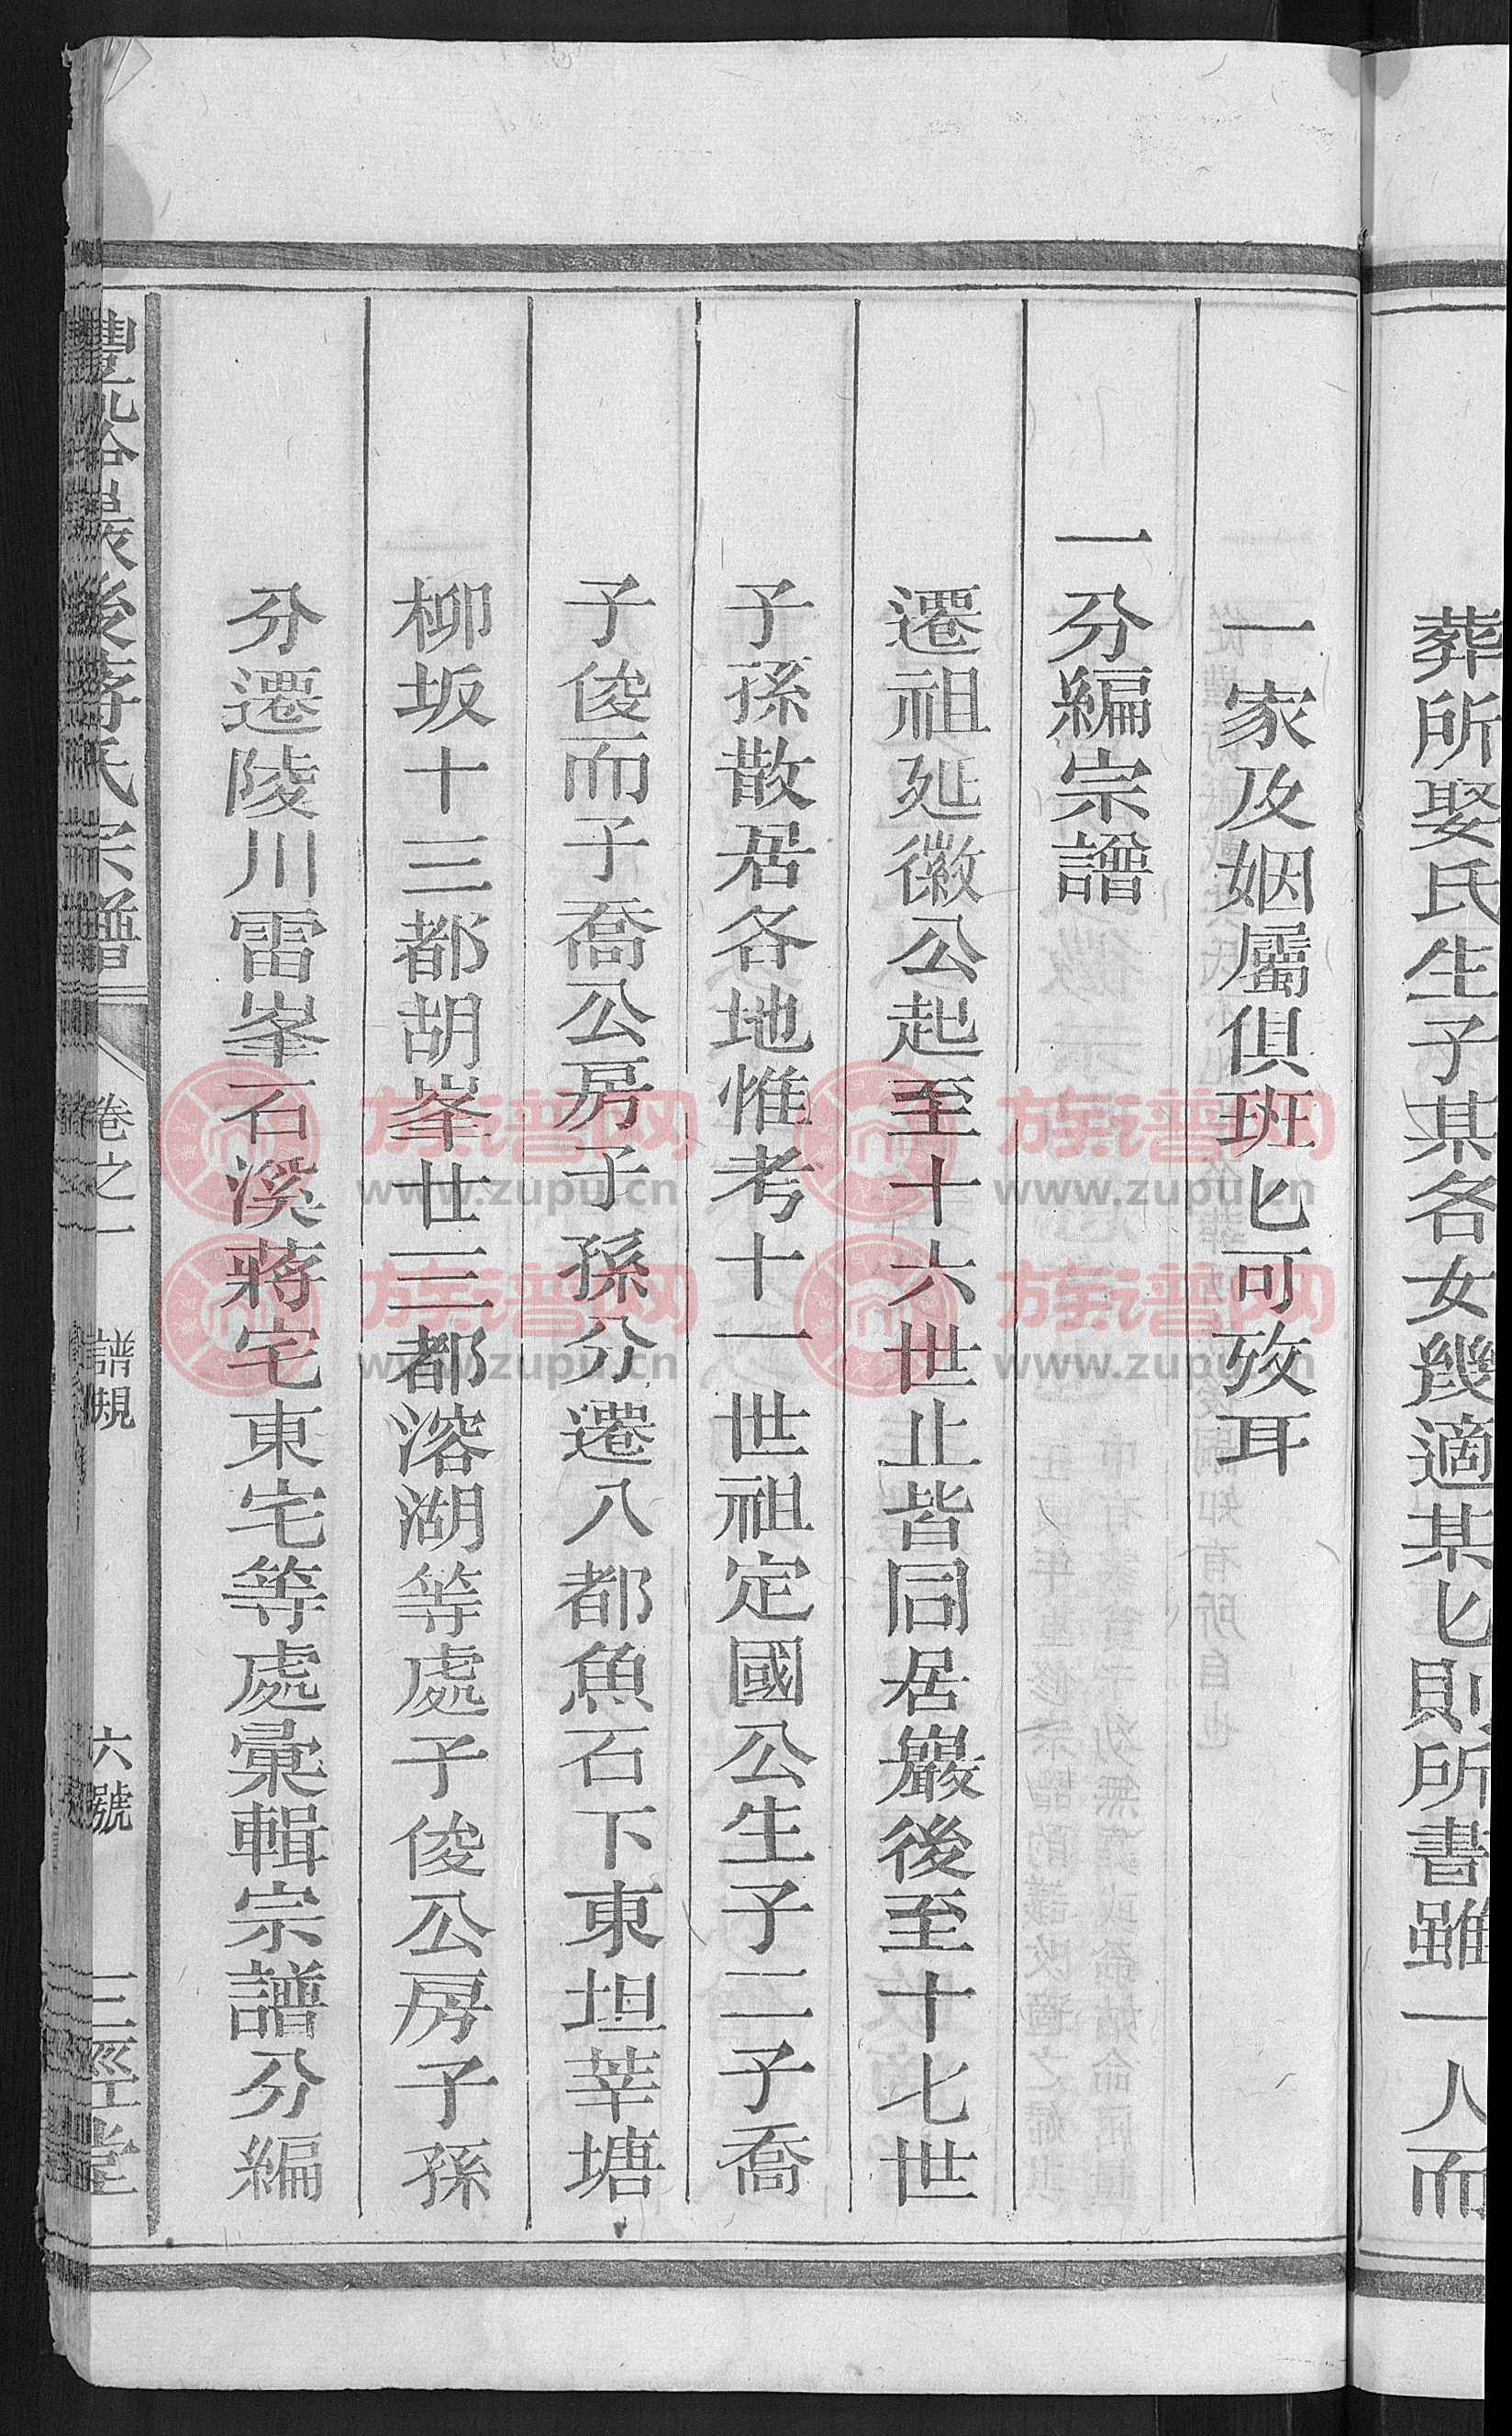 葬所娶氏生子某各女幾適某匕則所書雖一人而
一家及姻屬俱班匕可攷耳
一分編宗譜
遷祖延徽公起至十六世止皆同居巖後至十七世
子孫散居各地惟考十一世祖定國公生子二子喬
子俊而子喬公房子孫分遷八都魚石下東坦莘塘
柳坂十三都胡峯廿三都溶湖等處子俊公房子孫
分遷陵川雷峯石溪蔣宅東宅等處彙輯宗譜分編
後蔣氏宗譜 卷之一 譜規 六號 三徑堂
族谱网 www.zupu.cn
族谱网 www.zupu.cn
族谱网 www.zupu.cn
族谱网 www.zupu.cn